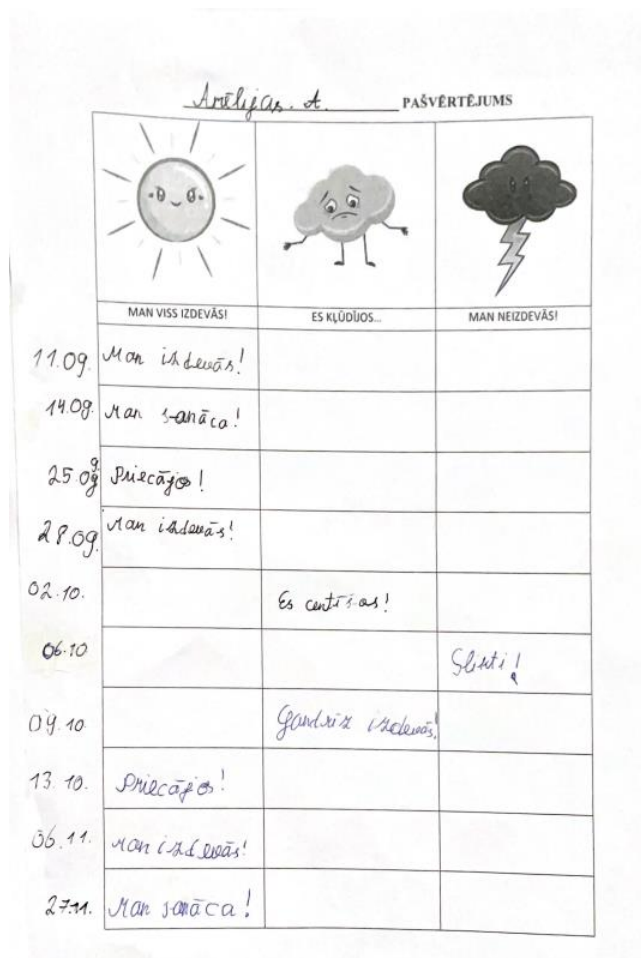 Amēlijas. A. PAŠVĒRTĒJUMS
MAN VISS IZDEVĀS! ES KĻŪDĪJOS... MAN NEIZDEVĀS!
11.09. Man izdevās!
14.09. Man sanāca!
25.09 Priecājos!
28.09. Man izdevās!
02.10. Es centīsos!
06.10 Slikti!
09.10 Gandrīz izdevās!
13.10. Priecājos!
06.11. Man izdevās!
27.11. Man sanāca!